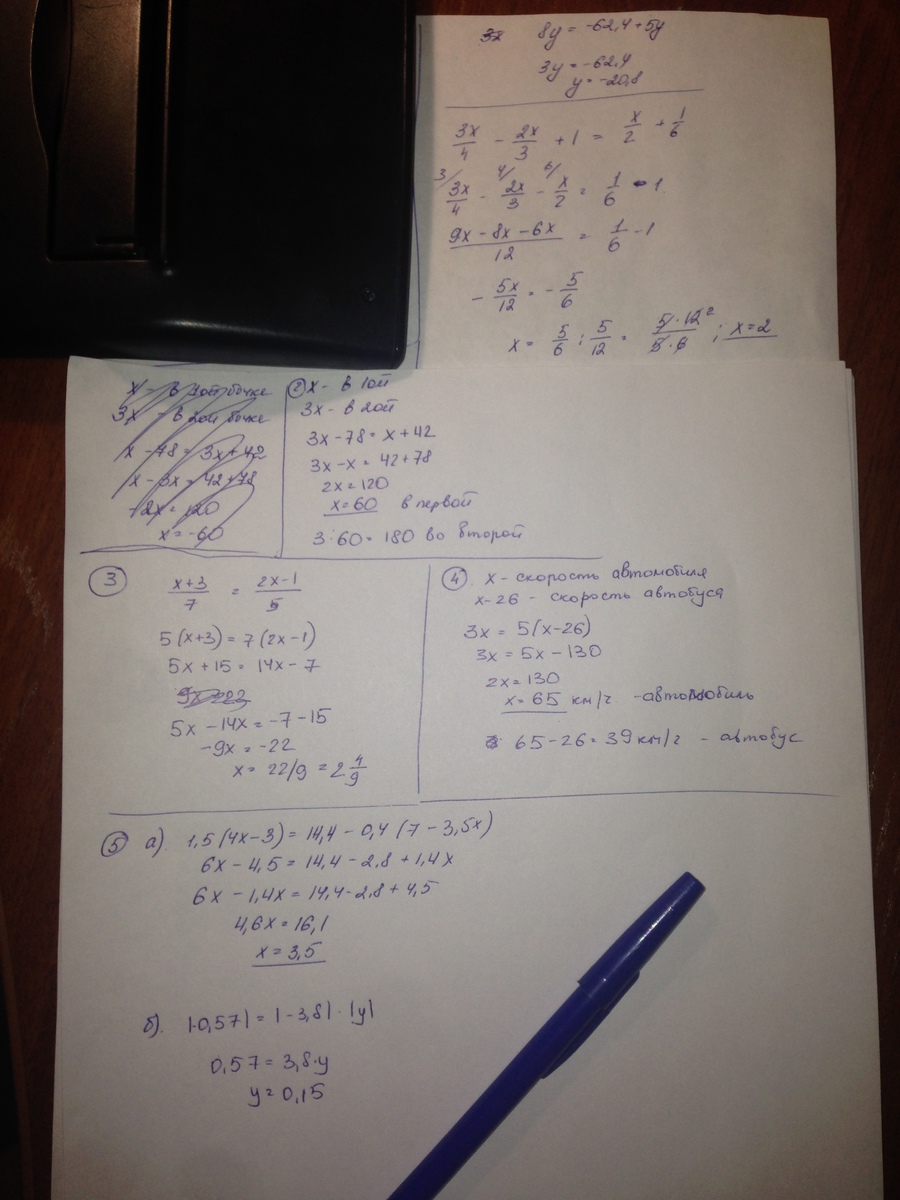 8y = -62,4 + 5y
3y = -62,4
y = -20,8
3x/4 - 2x/3 + 1 = x/2 + 1/6
3/ 3x/4 - 4/ 2x/3 - 6/ x/2 = 1/6 - 1
(9x - 8x - 6x)/12 = 1/6 - 1
- 5x/12 = - 5/6
x = 5/6 : 5/12 = (5 · 12²)/(5 · 6) ; x = 2
x - в 1ой бочке
3x - в 2ой бочке
x - 78 = 3x + 42
x - 3x = 42 + 78
-2x = 120
x = -60
② x - в 1ой
3x - в 2ой
3x - 78 = x + 42
3x - x = 42 + 78
2x = 120
x = 60 в первой
3·60 = 180 во второй
③ (x+3)/7 = (2x-1)/5
5(x+3) = 7(2x-1)
5x + 15 = 14x - 7
9x = 22
5x - 14x = -7 - 15
-9x = -22
x = 22/9 = 2 4/9
④ x - скорость автомобиля
x-26 - скорость автобуса
3x = 5(x-26)
3x = 5x - 130
2x = 130
x = 65 км/г - автомобиль
65 - 26 = 39 км/г - автобус
⑤ а). 1,5(4x-3) = 14,4 - 0,4(7 - 3,5x)
6x - 4,5 = 14,4 - 2,8 + 1,4x
6x - 1,4x = 14,4 - 2,8 + 4,5
4,6x = 16,1
x = 3,5
б). |-0,57| = |-3,8| · |y|
0,57 = 3,8·y
y = 0,15